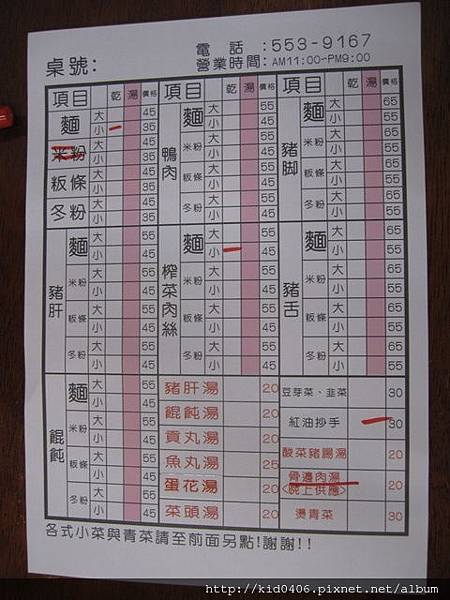 桌號:
電 話 :553-9167
營業時間:AM11:00-PM9:00
項目 乾 湯 價格
麵 大 45
小 35
米粉 大 45
小 35
粄條 大 45
小 35
冬粉 大 45
小 35
豬肝
麵 大 55
小 45
米粉 大 55
小 45
粄條 大 55
小 45
冬粉 大 55
小 45
餛飩
麵 大 55
小 45
米粉 大 55
小 45
粄條 大 55
小 45
冬粉 大 55
小 45
項目 乾 湯 價格
鴨肉
麵 大 55
小 45
米粉 大 55
小 45
粄條 大 55
小 45
冬粉 大 55
小 45
榨菜肉絲
麵 大 55
小 45
米粉 大 55
小 45
粄條 大 55
小 45
冬粉 大 55
小 45
豬肝湯 20
餛飩湯 20
貢丸湯 20
魚丸湯 25
蛋花湯 20
菜頭湯 20
項目 乾 湯 價格
豬脚
麵 大 65
小 55
米粉 大 65
小 55
粄條 大 65
小 55
冬粉 大 65
小 55
豬舌
麵 大 65
小 55
米粉 大 65
小 55
粄條 大 65
小 55
冬粉 大 65
小 55
豆芽菜、韭菜 30
紅油抄手 30
酸菜豬腸湯 20
骨邊肉湯
<晚上供應> 20
燙青菜 30
各式小菜與青菜請至前面另點!謝謝!!
http://kid0406.pixnet.net/album